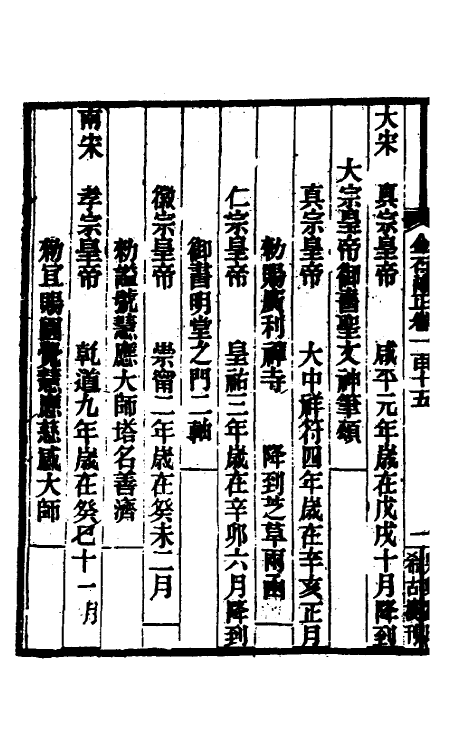 大宋 真宗皇帝 咸平元年歲在戊戌十月降到
太宗皇帝御書聖文神筆頌
真宗皇帝 大中祥符四年歲在辛亥正月
勑賜廣利禪寺 降到芝草兩函
仁宗皇帝 皇祐三年歲在辛卯六月降到
御書明堂之門二軸
徽宗皇帝 崇甯二年歲在癸未二月
勑謚號慧應大師塔名善濟
南宋 孝宗皇帝 乾道九年歲在癸巳十一月
勑宜賜圓覺慧應慈感大師
金石補正卷一百十五
希古樓刊